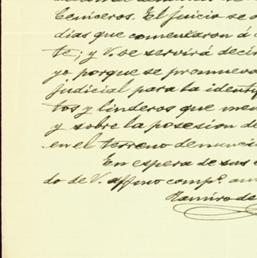 Ceniceros. El juicio se a
dias que comenzaron á c
te; y V. se servirá decir
yo porque se promueva
judicial para la identif
tos y linderos que men
y sobre la posesion de
en el terreno denuncia
En espera de sus
do de V. affmo compº. am
Ramiro de